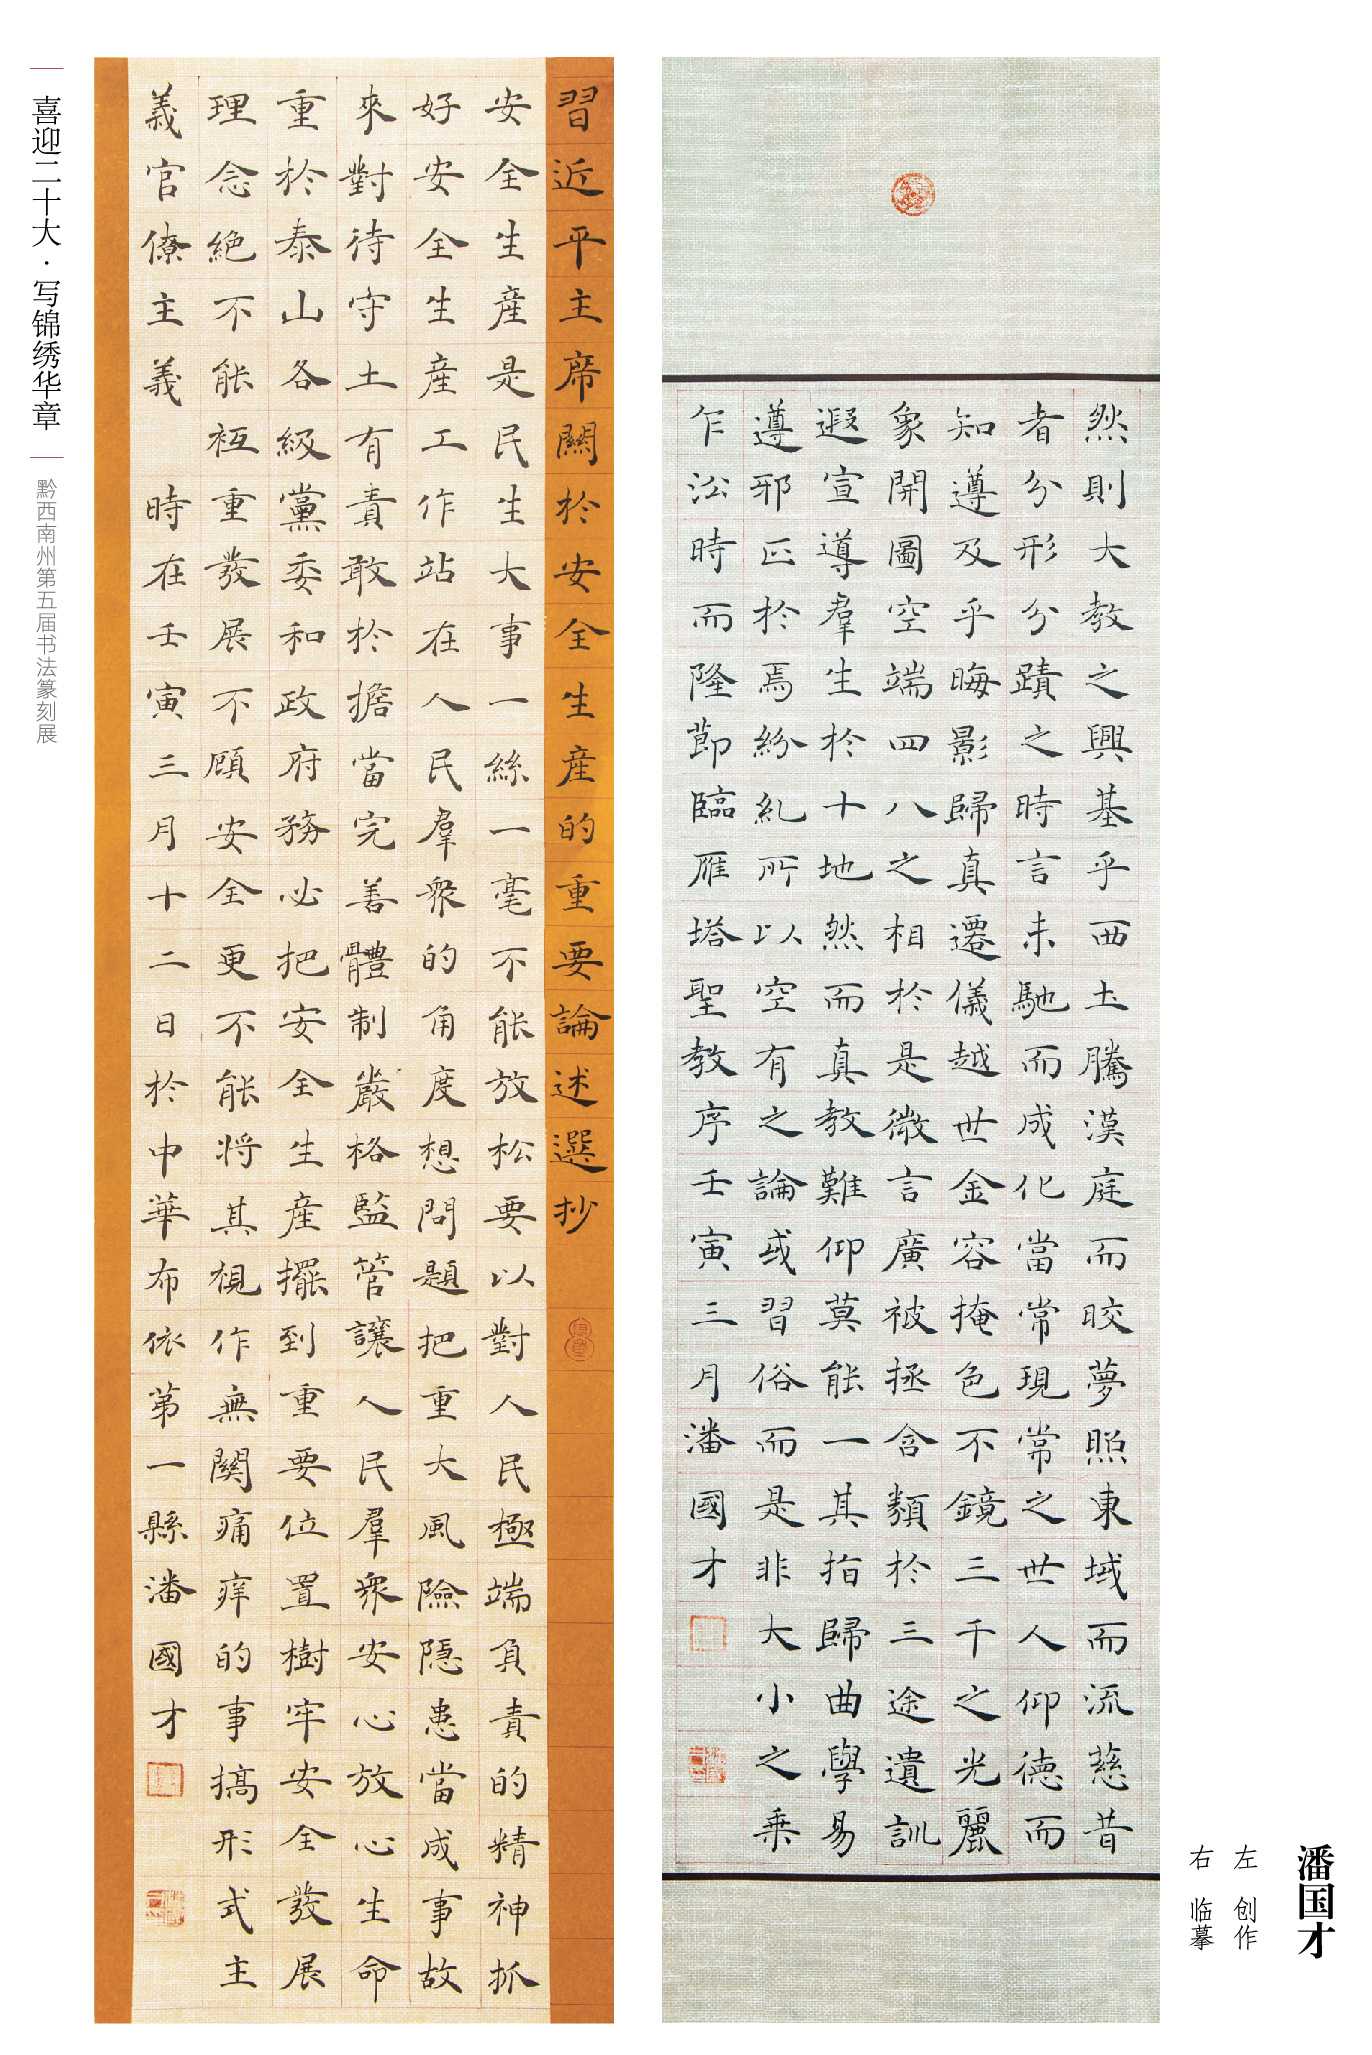 潘国才
左 创作
右 临摹
然則大教之興基乎西土騰漢庭而皎夢照東域而流慈昔
者分形分蹟之時言未馳而成化當常現常之世人仰德而
知遵及乎晦影歸真遷儀越世金容掩色不鏡三千之光麗
象開圖空端四八之相於是微言廣被拯含類於三途遺訓
遐宣導羣生於十地然而真教難仰莫能一其指歸曲學易
遵邪正於焉紛糺所以空有之論或習俗而是非大小之乘
乍沿時而隆節臨雁塔聖教序壬寅三月潘國才
習近平主席關於安全生産的重要論述選抄
安全生産是民生大事一絲一毫不能放松要以對人民極端負責的精神抓
好安全生産工作站在人民羣衆的角度想問題把重大風險隱患當成事故
來對待守土有責敢於擔當完善體制嚴格監管讓人民羣衆安心放心生命
重於泰山各級黨委和政府務必把安全生産擺到重要位置樹牢安全發展
理念絶不能衹重發展不顧安全更不能將其視作無關痛痒的事搞形式主
義官僚主義 時在壬寅三月十二日於中華布依第一縣潘國才
喜迎二十大·写锦绣华章
黔西南州第五届书法篆刻展